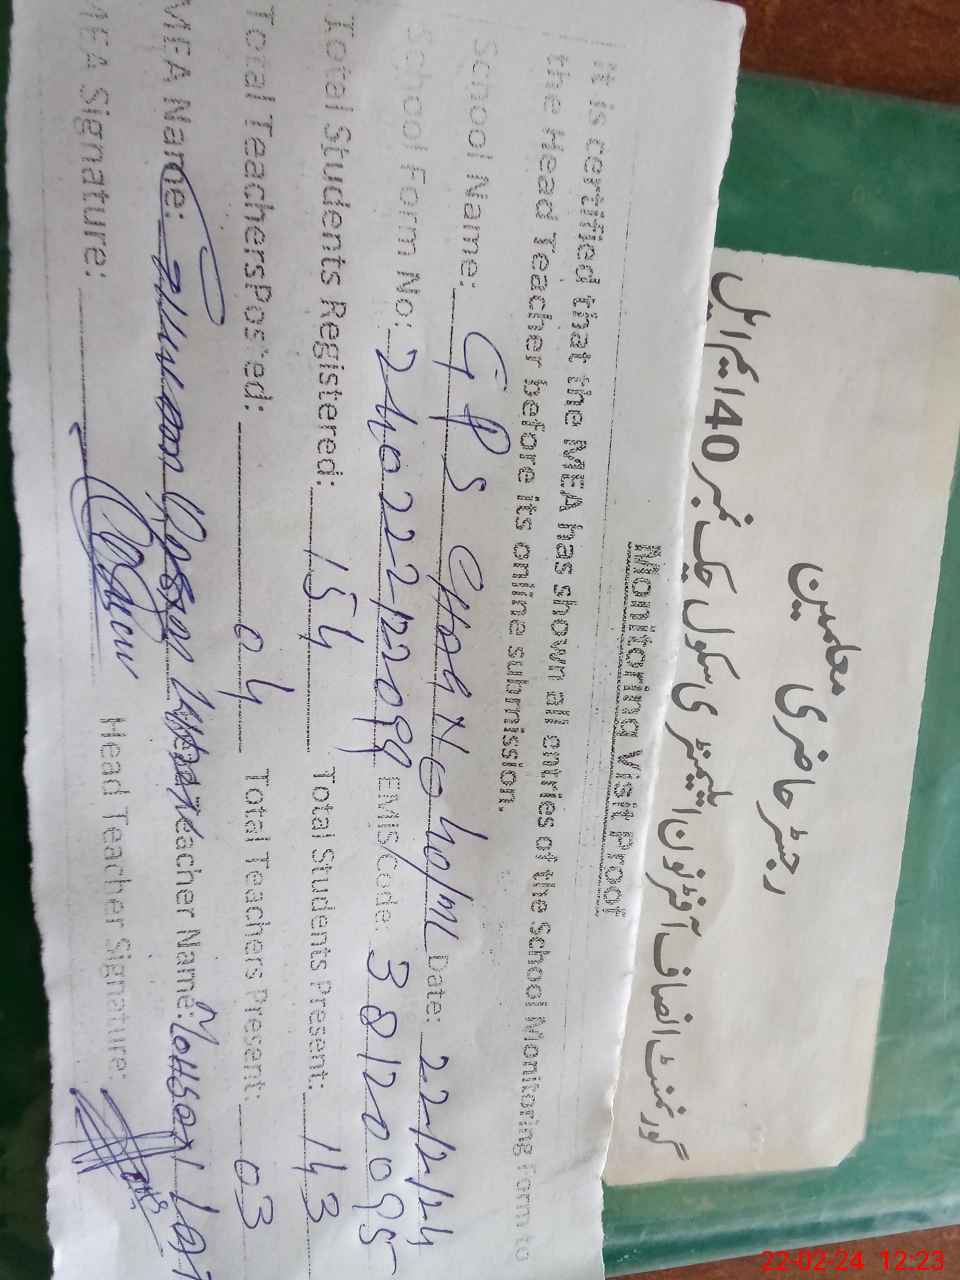 Monitoring Visit Proof
It is certified that the MEA has shown all entries of the School Monitoring Form to
the Head Teacher before its online submission.
School Name: GPS CHAK NO 40/ML Date: 22/2/24
School Form No: 24022212099 EMIS Code: 38120095
Total Students Registered: 154 Total Students Present: 143
Total Teachers Posted: 04 Total Teachers Present: 03
MEA Name: Hassan Teacher Name: Mohsan
MEA Signature: Head Teacher Signature:
رجسٹر حاضری معلمین
گورنمنٹ انصاف آفٹرنون ایلیمنٹری سکول چک نمبر 40 ایم ایل
22-02-24 12:23